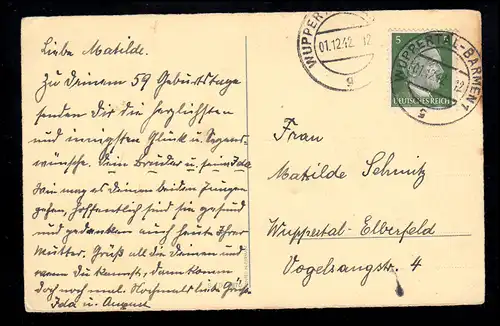 Liebe Matilde.
Zu Deinem 59 Geburtstage
senden Dir die herzlichsten
und innigsten Glück u. Segens-
wünsche. Dein Bruder u. seine Ida.
Wie mag es Deinen beiden Jungen
gehen, hoffentlich sind sie gesund
und gedenken auch heute Ihrer
Mutter. Grüß all die Deinen und
wenn Du kannst, dann komm
doch noch mal. Nochmals liebe Grüße
Ida u. August
WUPPERTAL-
01.12.42 12
g
5
DEUTSCHES REICH
WUPPERTAL-BARMEN 1
12
g
Frau
Matilde Schmitz
Wuppertal-Elberfeld
Vogelsangstr. 4